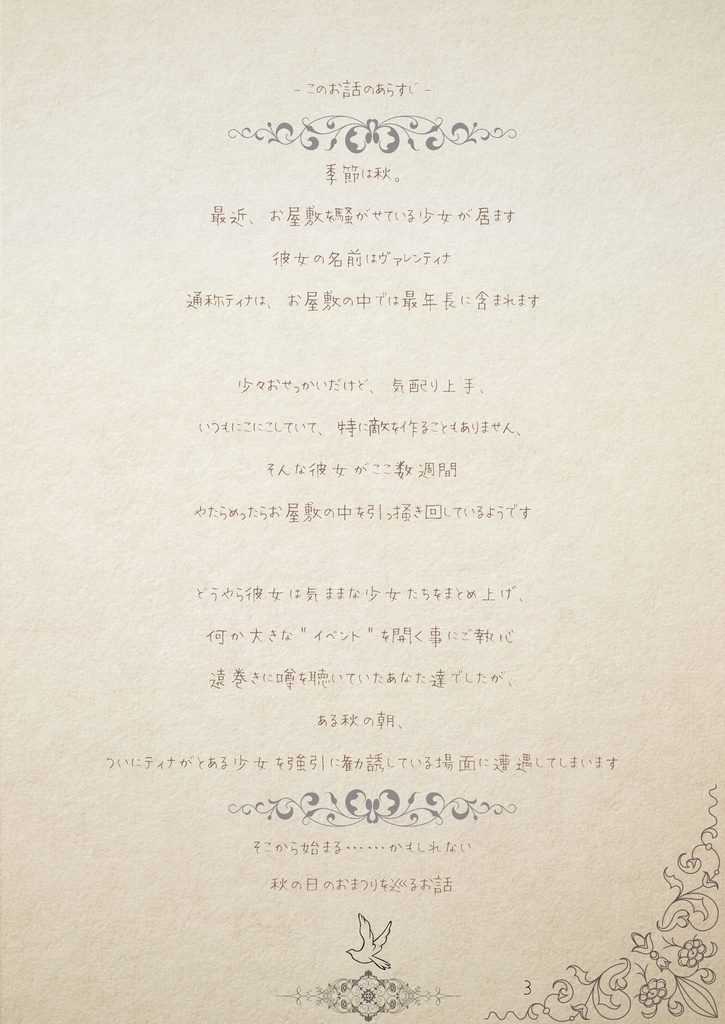 - このお話のあらすじ -
季節は秋。
最近、お屋敷を騒がせている少女が居ます
彼女の名前はヴァレンティナ
通称ティナは、お屋敷の中では最年長に含まれます
少々おせっかいだけど、気配り上手、
いつもにこにこしていて、特に敵を作ることもありません、
そんな彼女がここ数週間
やたらめったらお屋敷の中を引っ掻き回しているようです
どうやら彼女は気ままな少女たちをまとめ上げ、
何か大きな"イベント"を開く事にご執心
遠巻きに噂を聴いていたあなた達でしたが、
ある秋の朝、
ついにティナがとある少女を強引に勧誘している場面に遭遇してしまいます
そこから始まる……かもしれない
秋の日のおまつりを巡るお話
3